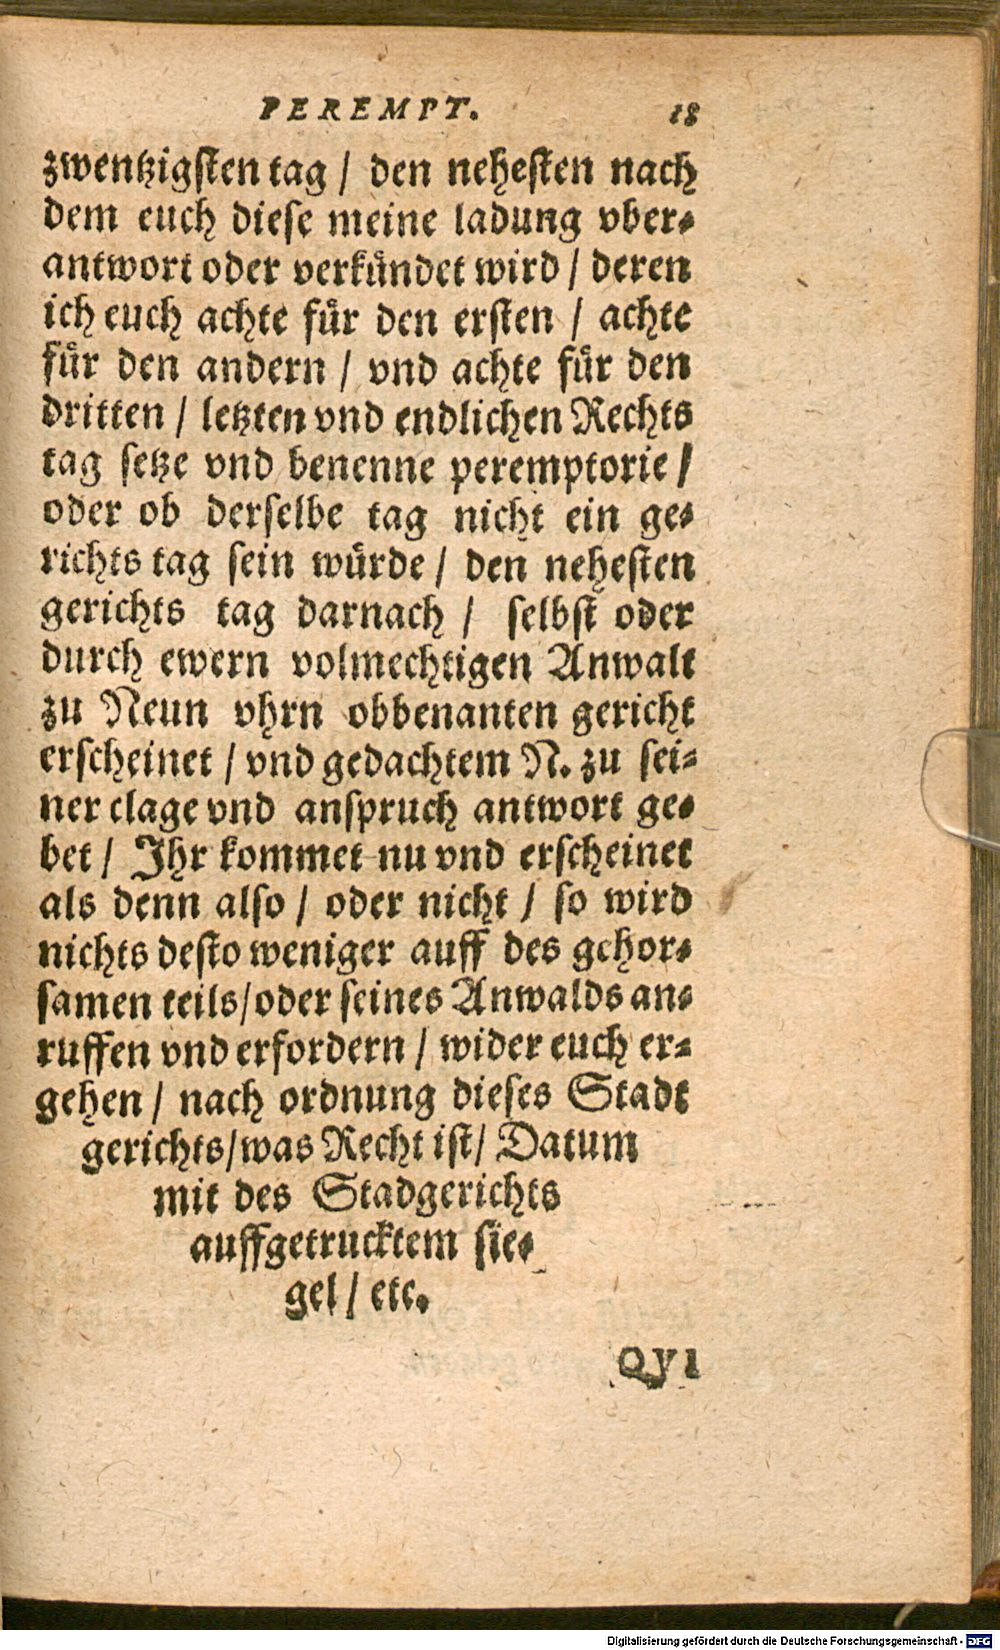 PEREMPT. 18
zwentzigsten tag / den nehesten nach
dem euch diese meine ladung vber⸗
antwort oder verkündet wird / deren
ich euch achte für den ersten / achte
für den andern / vnd achte für den
dritten / letzten vnd endlichen Rechts
tag setze vnd benenne peremptorie /
oder ob derselbe tag nicht ein ge⸗
richts tag sein würde / den nehesten
gerichts tag darnach / selbst oder
durch ewern volmechtigen Anwalt
zu Neun vhrn obbenanten gericht
erscheinet / vnd gedachtem N. zu sei⸗
ner clage vnd anspruch antwort ge⸗
bet / Ihr kommet nu vnd erscheinet
als denn also / oder nicht / so wird
nichts desto weniger auff des gehor⸗
samen teils/oder seines Anwalds an⸗
ruffen vnd erfordern / wider euch er⸗
gehen / nach ordnung dieses Stadt
gerichts/was Recht ist/ Datum
mit des Stadgerichts
auffgetrucktem sie⸗
gel / etc.
QVI
Digitalisierung gefördert durch die Deutsche Forschungsgemeinschaft - DFG